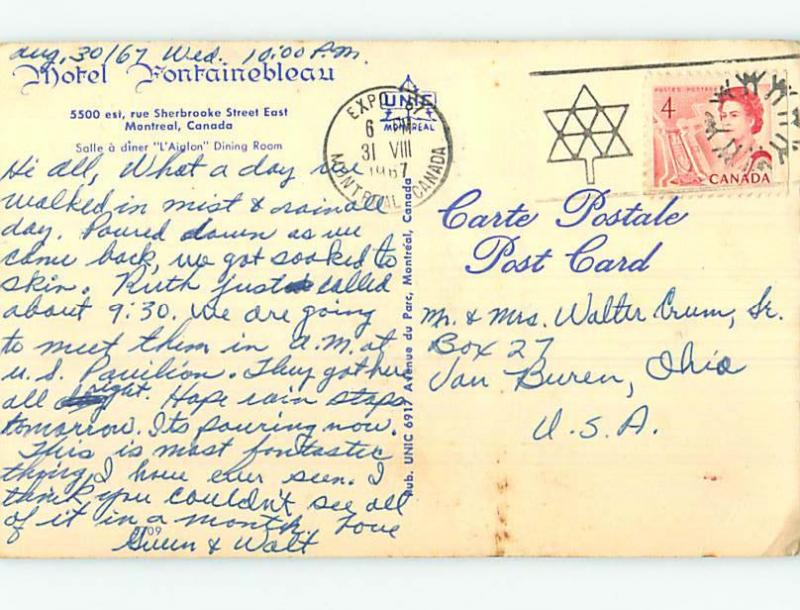 Aug. 30/67 Wed. 10:00 P.M.
Motel Fontainebleau
5500 est, rue Sherbrooke Street East
Montreal, Canada
Salle à dîner "L'Aiglon" Dining Room
Hi all, What a day we
walked in mist & rain all
day. Poured down as we
came back, we got soaked to
skin. Ruth just called
about 9:30. We are going
to meet them in a.m. at
U.S. Pavilion. They got here
all right. Hope rain stops
tomorrow. Its pouring now.
This is most fantastic
thing I have ever seen. I
think you couldn't see all
of it in a month. Love
Gwen & Walt
09
UNIC
MONTREAL
Pub. UNIC 6917 Avenue du Parc, Montréal, Canada
EXPO
6 PM
31 VIII
1967
MONTREAL CANADA
POSTES POSTAGE
4
CANADA
Carte Postale
Post Card
Mr. & Mrs. Walter Crum, Sr.
Box 27
Van Buren, Ohio
U.S.A.